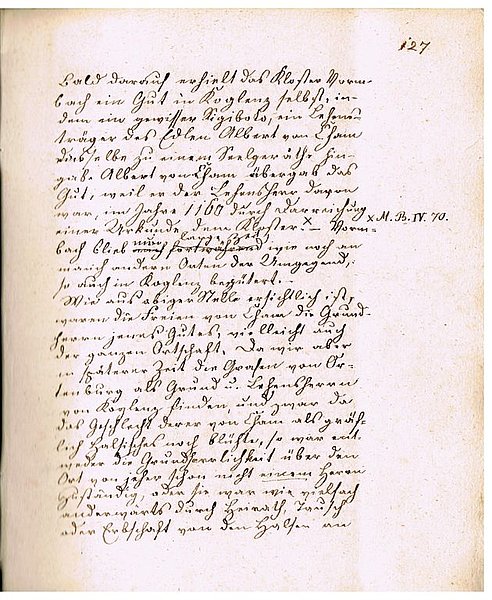 127
Bald darauf erhielt das Kloster Vorn-
bach ein Gut in Koglenz selbst, in-
dem ein gewisser Sigiboto, ein Lehens-
träger des Edlen Albert von Cham
dasselbe zu einem Seelgeräthe hin-
gab. Albert von Cham übergab das
Gut, weil er der Lehensherr davon
war, im Jahre 1160 durch Darreichung
einer Urkunde dem Kloster. × – Vorn- × M. B. IV. 70.
bach blieb nun lange Zeit fortwährend wie noch an
manch andern Orten der Umgegend,
so auch in Koglenz begütert. –
Wie aus obiger Stelle ersichtlich ist,
waren die Freien von Cham die Grund-
herrn jenes Gutes, vielleicht auch
der ganzen Ortschaft. Da wir aber
in späterer Zeit die Grafen von Or-
tenburg als Grund u. Lehensherren
von Koglenz finden, und zwar da
das Geschlecht derer von Cham als gräf-
lich Halsisches noch blühte, so war ent-
weder die Grundherrlichkeit über den
Ort von jeher schon nicht einem Herrn
zuständig, oder sie war wie vielfach
anderwärts durch Heirath, Tausch
oder Erbschaft von den Halsen an